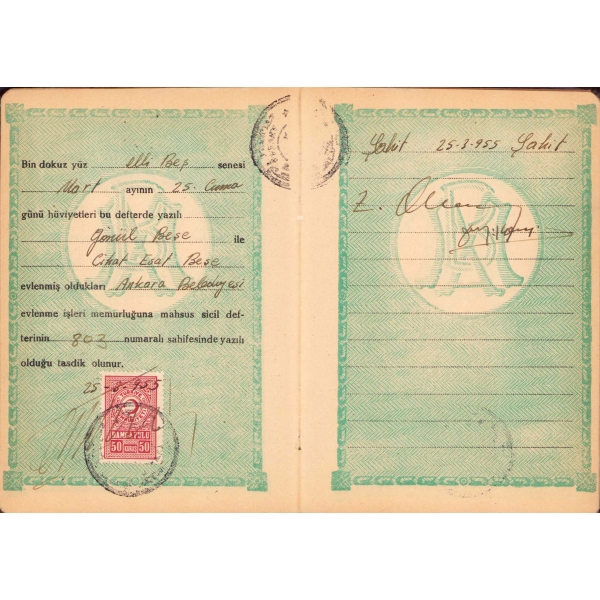 Bin dokuz yüz elli Beş senesi
Mart ayının 25. Cuma
günü hüviyetleri bu defterde yazılı
Gönül Beşe ile
Cihat Esat Beşe
evlenmiş oldukları Ankara Belediyesi
evlenme işleri memurluğuna mahsus sicil def-
terinin 803 numaralı sahifesinde yazılı
olduğu tasdik olunur.
25-3-955
DAMGA PULU
50 KURUŞ 50
Şahit 25-3-955 Şahit
Z.